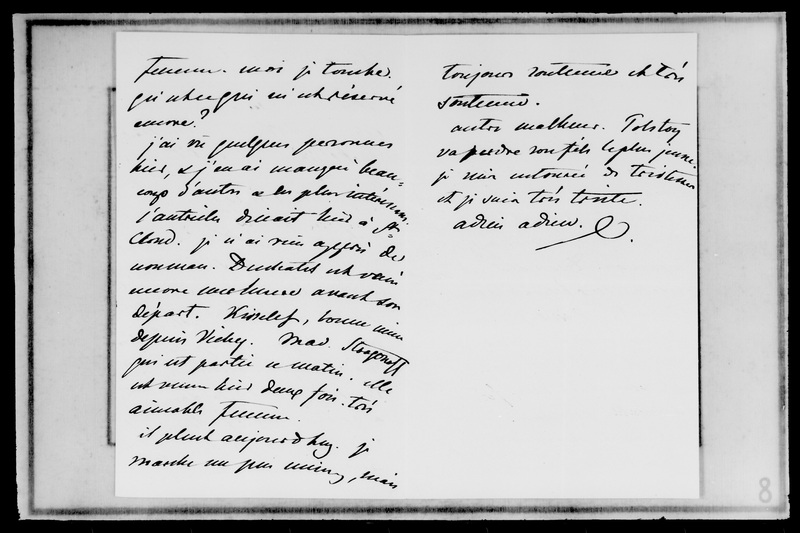 femme. mais je tombe.
qu'est ce qui m'est réservé
encore?
j'ai vu quelques personnes
hier, & j'en ai manqué beau-
coup d'autres & les plus intéressans.
j'autriche dinait hier à St
Cloud. je n'ai rien appris de
nouveau. Duchatel est venu
encore me braver avant son
départ. Kisselef, bonne mine
depuis Vichy. Mad. Strogonoff
qui est partie ce matin. elle
est venue hier deux fois. très
aimable femme.
il pleut aujourd'huy. je
marche un peu mieux, mais
toujours soutenue et très
soutenue.
autre malheur. Tolstoy
va perdre son fils le plus jeune.
je suis entourée de tristesses
et je suis très triste.
adieu adieu.
8